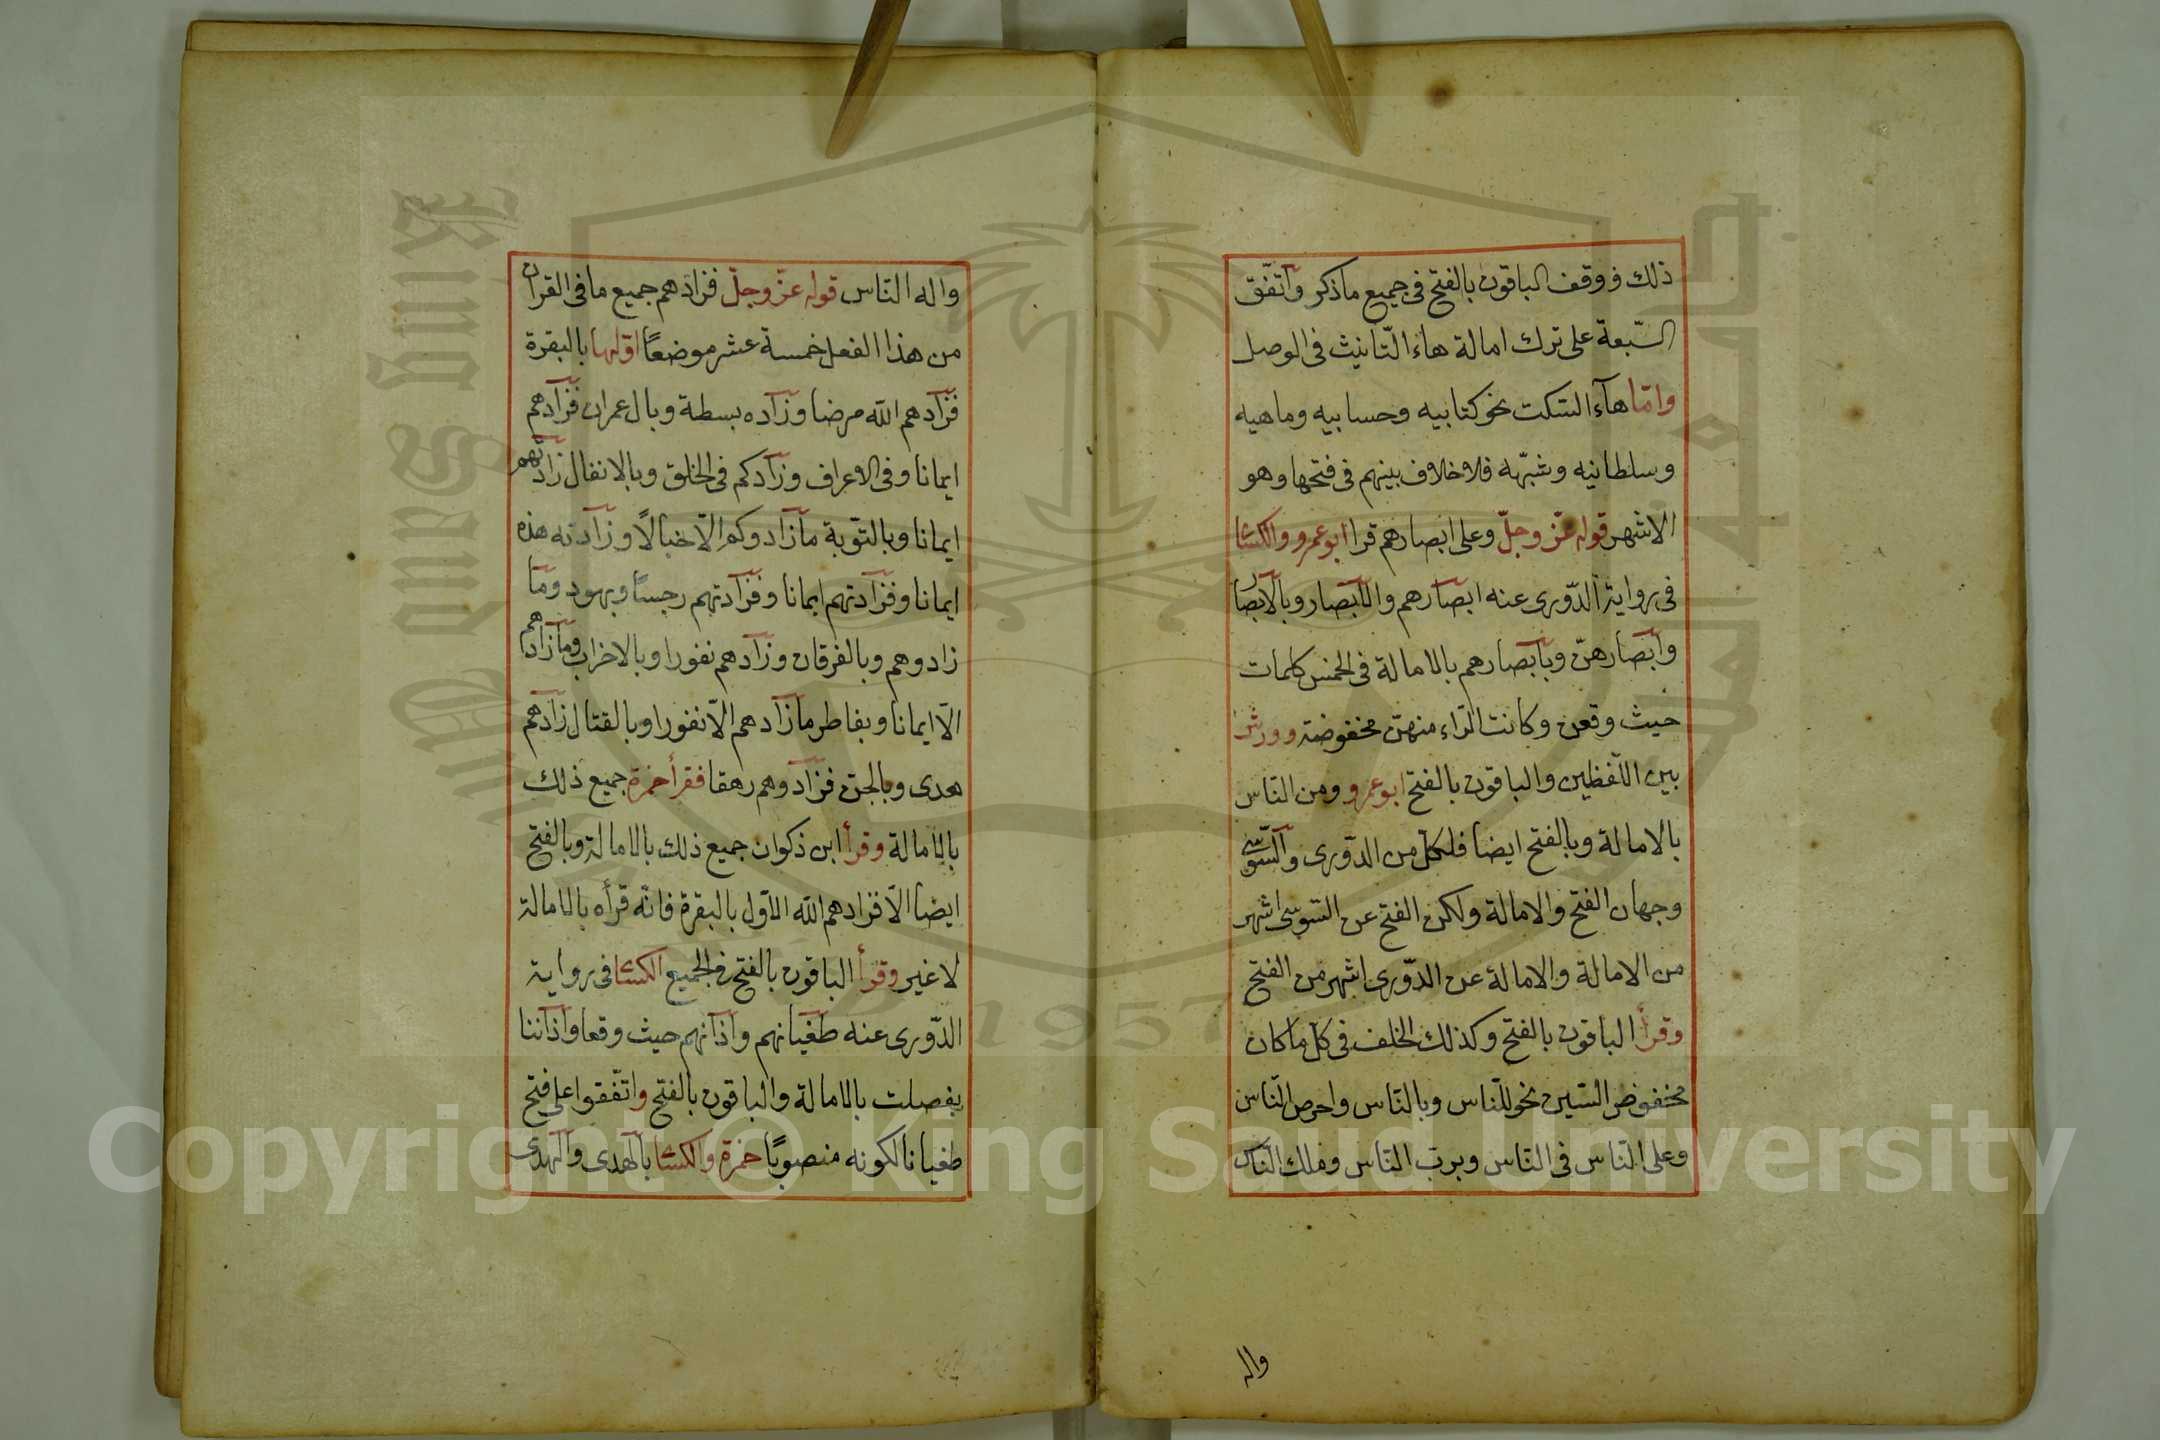 ذلك ووقف الباقون بالفتح في جميع ما ذكر واتّفق
السّبعة على ترك امالة هاء التّانيث في الوصل
وامّا هآء السّكت نحو كتابيه وحسابيه وماهيه
وسلطانيه وشبّهه فلا خلاف بينهم في فتحها وهو
الاشهر قوله عزّ وجلّ وعلى ابصارهم قرا ابو عمرو والكسٔا
في رواية الدّورى عنه ابصآرهم والابصآر وبالابصار
وابصآرهنّ وبابصآرهم بالامالة في الخمس كلمات
حيث وقعن وكانت الرّاء منهنّ مخفوضة وورش
بين اللّفظين والباقون بالفتح ابو عمرو ومن النّاس
بالامالة وبالفتح ايضا فلكلّ من الدّورى والسّوسى
وجهان الفتح والامالة ولكن الفتح عن السّوسى اشهر
من الامالة والامالة عن الدّورى اشهر من الفتح
وقرأ الباقون بالفتح وكذلك الخلف في كلّ ما كان
مخفوض السّين نحو للنّاس وبالنّاس واحرص النّاس
وعلى النّاس في النّاس وبربّ النّاس وملك النّاس
واله
واله النّاس قوله عزّ وجلّ فزادهم جميع ما في القران
من هذا الفعل خمسة عشر موضعًا اوّلها بالبقرة
فزآدهم اللّه مرضا وزآده بسطة وبال عمران فزآدهم
ايمانا وفي الاعراف وزآدكم في الخلق وبالانفال زادتهم
ايمانا وبالتّوبة ما زآدوكم الّا خبالًا وزآدته هذه
ايمانا وفزآدتهم ايمانا وفزآدتهم رجسًا وبهود وما
زادوهم وبالفرقان وزآدهم نفورا وبالاحزاب وما زادهم
الّا ايمانا وبفاطر ما زآدهم الّا نفورا وبالقتال زآدهم
هدى وبالجنّ فزآدوهم رهقا فقرأ حمزة جميع ذلك
بالامالة وقرأ ابن ذكوان جميع ذلك بالامالة وبالفتح
ايضا الّا فزادهم اللّه الاوّل بالبقرة فانّه قرأه بالامالة
لا غير وقرأ الباقون بالفتح في الجميع الكسٔا في رواية
الدّورى عنه طغيآنهم وآذآنهم حيث وقعا وآذآننا
بفصلت بالامالة والباقون بالفتح واتّفقوا على فتح
طغيانا لكونه منصوبًا حمزة والكسٔا بالهدى والهدى
King Saud University
1957
Copyright © King Saud University